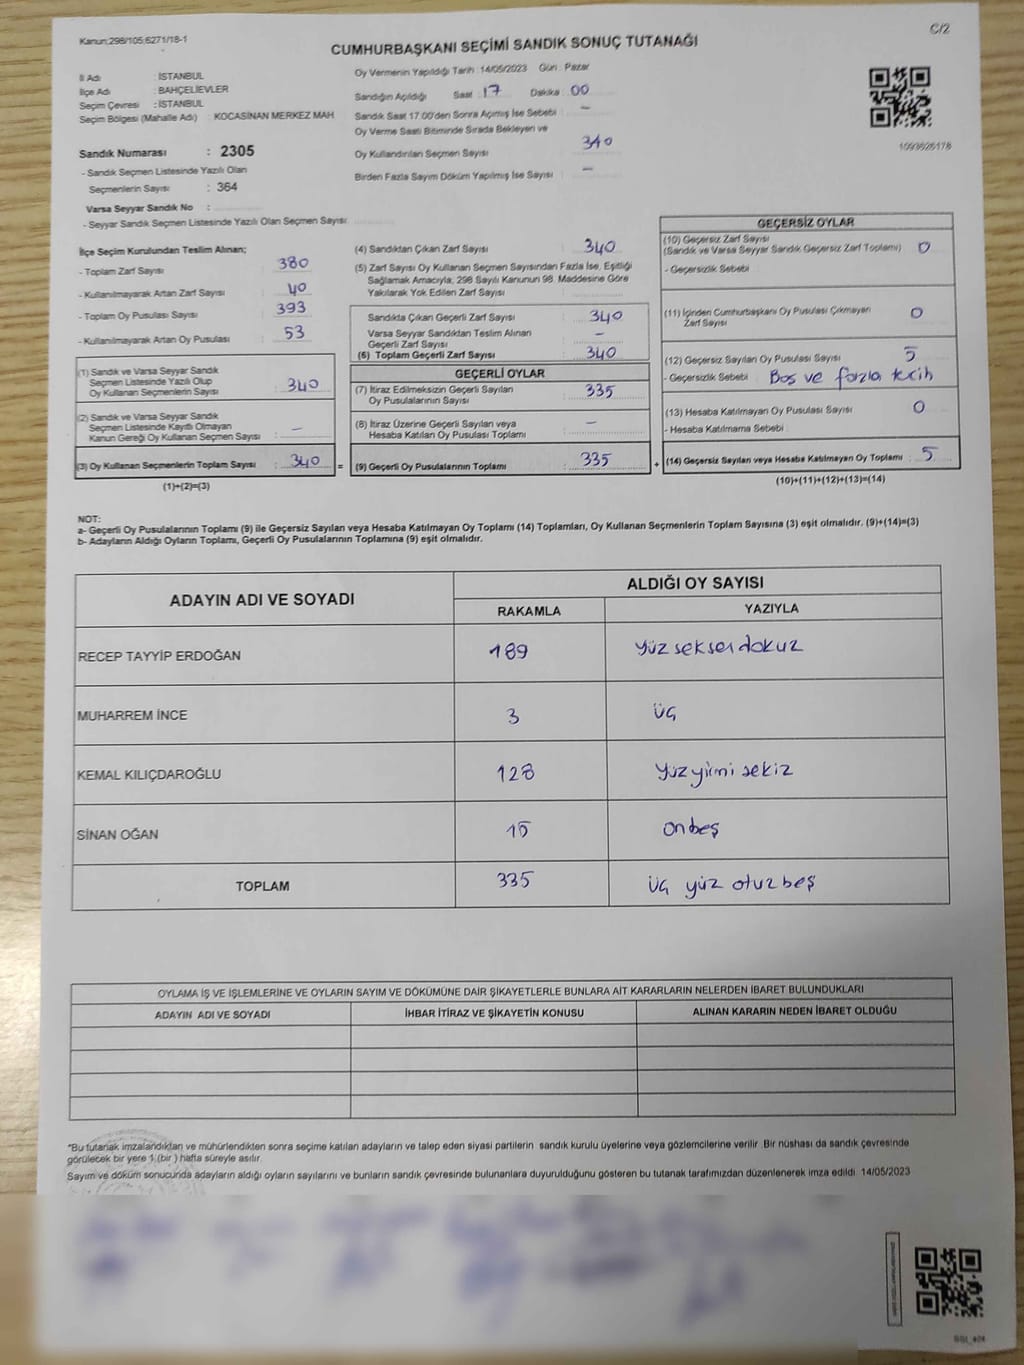 Kanun:298/105;6271/18-1
C/2
CUMHURBAŞKANI SEÇİMİ SANDIK SONUÇ TUTANAĞI
İl Adı : İSTANBUL
İlçe Adı : BAHÇELİEVLER
Seçim Çevresi : İSTANBUL
Seçim Bölgesi (Mahalle Adı) : KOCASİNAN MERKEZ MAH
Sandık Numarası : 2305
- Sandık Seçmen Listesinde Yazılı Olan
Seçmenlerin Sayısı : 364
Varsa Seyyar Sandık No :
- Seyyar Sandık Seçmen Listesinde Yazılı Olan Seçmen Sayısı:
Oy Vermenin Yapıldığı Tarih : 14/05/2023 Gün : Pazar
Sandığın Açıldığı Saat : 17 Dakika : 00
Sandık Saat 17:00'den Sonra Açımış İse Sebebi : -
Oy Verme Saati Bitiminde Sırada Bekleyen ve
Oy Kullandırılan Seçmen Sayısı 340
Birden Fazla Sayım Döküm Yapılmış İse Sayısı -
1093626178
İlçe Seçim Kurulundan Teslim Alınan;
- Toplam Zarf Sayısı : 380
- Kullanılmayarak Artan Zarf Sayısı : 40
- Toplam Oy Pusulası Sayısı : 393
- Kullanılmayarak Artan Oy Pusulası : 53
(1) Sandık ve Varsa Seyyar Sandık
Seçmen Listesinde Yazılı Olup
Oy Kullanan Seçmenlerin Sayısı : 340
(2) Sandık ve Varsa Seyyar Sandık
Seçmen Listesinde Kayıtlı Olmayan
Kanun Gereği Oy Kullanan Seçmen Sayısı : -
(3) Oy Kullanan Seçmenlerin Toplam Sayısı : 340 =
(1)+(2)=(3)
(4) Sandıktan Çıkan Zarf Sayısı : 340
(5) Zarf Sayısı Oy Kullanan Seçmen Sayısından Fazla İse, Eşitliği
Sağlamak Amacıyla, 298 Sayılı Kanunun 98. Maddesine Göre
Yakılarak Yok Edilen Zarf Sayısı :
Sandıkta Çıkan Geçerli Zarf Sayısı : 340
Varsa Seyyar Sandıktan Teslim Alınan
Geçerli Zarf Sayısı : -
(6) Toplam Geçerli Zarf Sayısı : 340
GEÇERLİ OYLAR
(7) İtiraz Edilmeksizin Geçerli Sayılan
Oy Pusulalarının Sayısı : 335
(8) İtiraz Üzerine Geçerli Sayılan veya
Hesaba Katılan Oy Pusulası Toplamı : -
(9) Geçerli Oy Pusulalarının Toplamı : 335 +
GEÇERSİZ OYLAR
(10) Geçersiz Zarf Sayısı
(Sandık ve Varsa Seyyar Sandık Geçersiz Zarf Toplamı) : 0
- Geçersizlik Sebebi :
(11) İçinden Cumhurbaşkanı Oy Pusulası Çıkmayan
Zarf Sayısı : 0
(12) Geçersiz Sayılan Oy Pusulası Sayısı : 5
- Geçersizlik Sebebi : Boş ve fazla tercih
(13) Hesaba Katılmayan Oy Pusulası Sayısı : 0
- Hesaba Katılmama Sebebi :
(14) Geçersiz Sayılan veya Hesaba Katılmayan Oy Toplamı : 5
(10)+(11)+(12)+(13)=(14)
NOT:
a- Geçerli Oy Pusulalarının Toplamı (9) ile Geçersiz Sayılan veya Hesaba Katılmayan Oy Toplamı (14) Toplamları, Oy Kullanan Seçmenlerin Toplam Sayısına (3) eşit olmalıdır. (9)+(14)=(3)
b- Adayların Aldığı Oyların Toplamı, Geçerli Oy Pusulalarının Toplamına (9) eşit olmalıdır.
ADAYIN ADI VE SOYADI
ALDIĞI OY SAYISI
RAKAMLA YAZIYLA
RECEP TAYYİP ERDOĞAN 189 Yüz seksen dokuz
MUHARREM İNCE 3 üç
KEMAL KILIÇDAROĞLU 128 Yüz yirmi sekiz
SİNAN OĞAN 15 onbeş
TOPLAM 335 üç yüz otuz beş
OYLAMA İŞ VE İŞLEMLERİNE VE OYLARIN SAYIM VE DÖKÜMÜNE DAİR ŞİKAYETLERLE BUNLARA AİT KARARLARIN NELERDEN İBARET BULUNDUKLARI
ADAYIN ADI VE SOYADI İHBAR İTİRAZ VE ŞİKAYETİN KONUSU ALINAN KARARIN NEDEN İBARET OLDUĞU
*Bu tutanak imzalandıktan ve mühürlendikten sonra seçime katılan adayların ve talep eden siyasi partilerin sandık kurulu üyelerine veya gözlemcilerine verilir. Bir nüshası da sandık çevresinde
görülecek bir yere 1 (bir) hafta süreyle asılır.
Sayım ve döküm sonucunda adayların aldığı oyların sayılarını ve bunların sandık çevresinde bulunanlara duyurulduğunu gösteren bu tutanak tarafımızdan düzenlenerek imza edildi. 14/05/2023